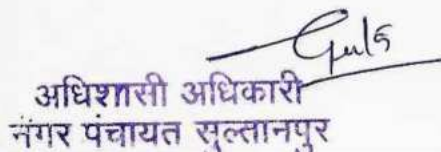 अधिशासी अधिकारी
नगर पंचायत सुल्तानपुर